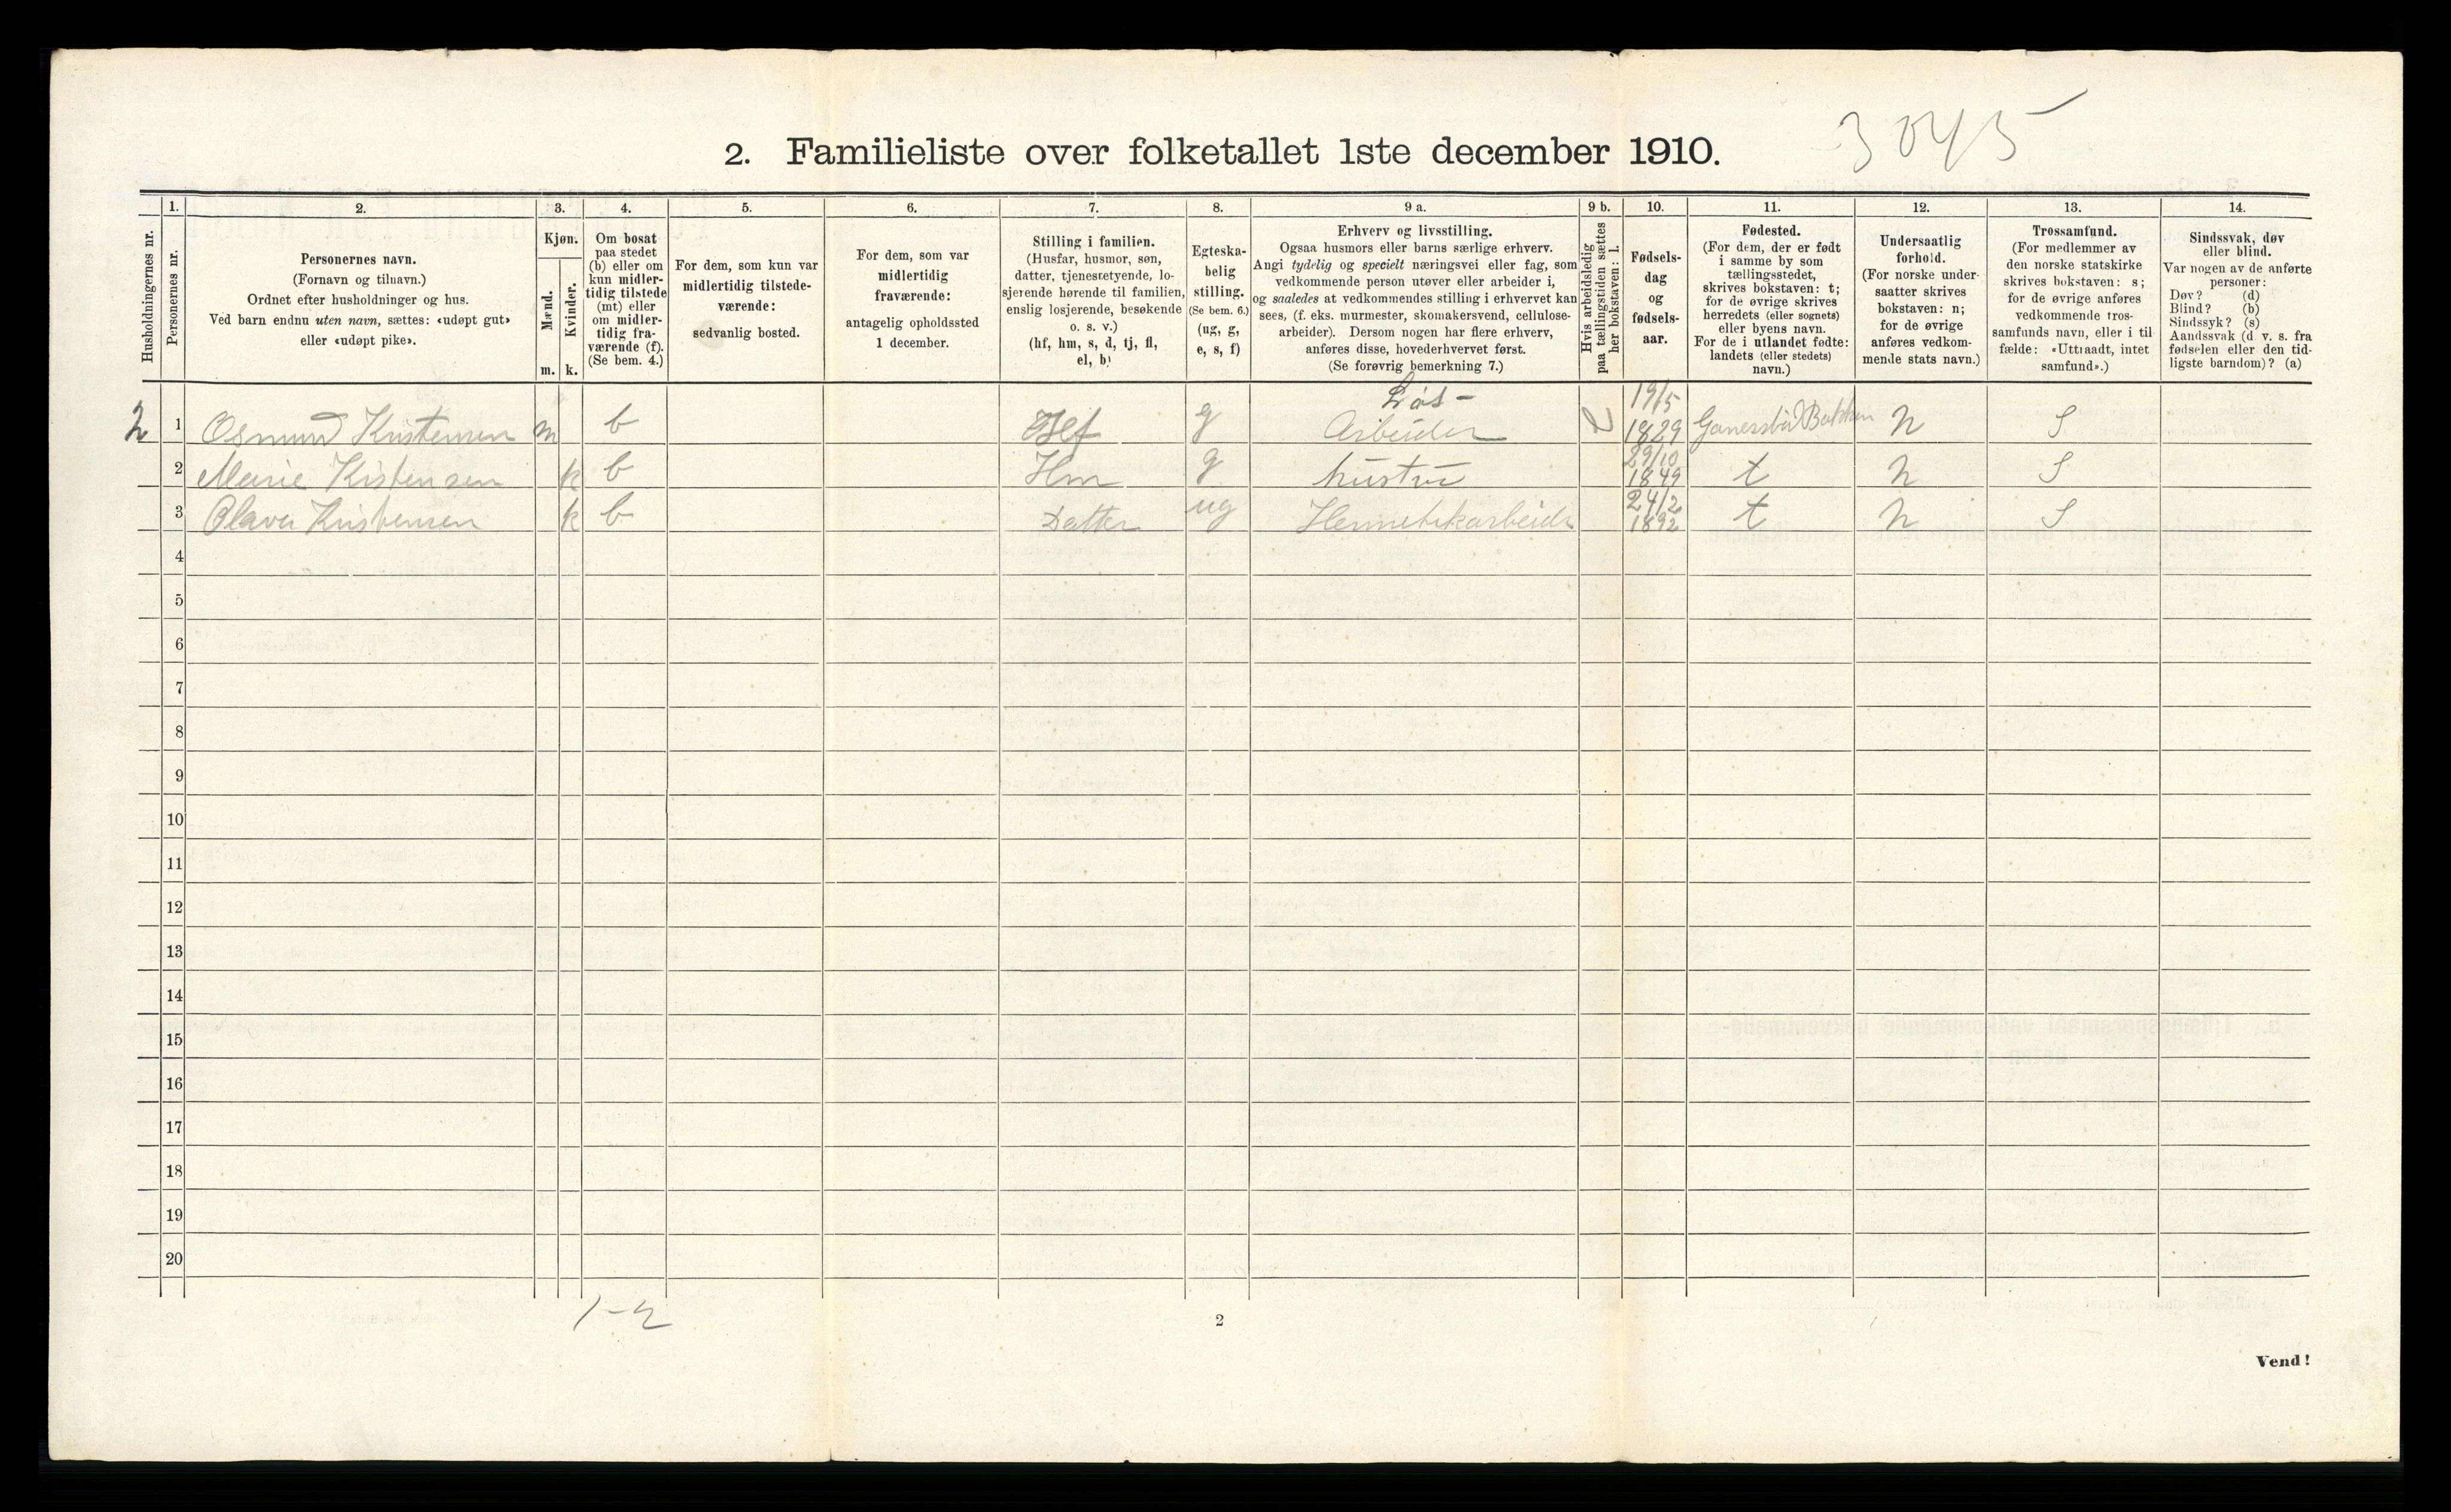 3045
2. Familieliste over folketallet 1ste december 1910.
Husholdningernes nr.
1.
Personernes nr.
2.
Personernes navn.
(Fornavn og tilnavn.)
Ordnet efter husholdninger og hus.
Ved barn endnu uten navn, sættes: «udøpt gut»
eller «udøpt pike».
3.
Kjøn.
Mænd.
Kvinder.
m.
k.
4.
Om bosat
paa stedet
(b) eller om
kun midler-
tidig tilstede
(mt) eller
om midler-
tidig fra-
værende (f).
(Se bem. 4.)
5.
For dem, som kun var
midlertidig tilstede-
værende:
sedvanlig bosted.
6.
For dem, som var
midlertidig
fraværende:
antagelig opholdssted
1 december.
7.
Stilling i familien.
(Husfar, husmor, søn,
datter, tjenestetyende, lo-
sjerende hørende til familien,
enslig losjerende, besøkende
o. s. v.)
(hf, hm, s, d, tj, fl,
el, b)
8.
Egteska-
belig
stilling.
(Se bem. 6.)
(ug, g,
e, s, f)
9 a.
Erhverv og livsstilling.
Ogsaa husmors eller barns særlige erhverv.
Angi tydelig og specielt næringsvei eller fag, som
vedkommende person utøver eller arbeider i,
og saaledes at vedkommendes stilling i erhvervet kan
sees, (f. eks. murmester, skomakersvend, cellulose-
arbeider). Dersom nogen har flere erhverv,
anføres disse, hovederhvervet først.
(Se forøvrig bemerkning 7.)
9 b.
Hvis arbeidsledig
paa tællingstiden sættes
her bokstaven: l.
10.
Fødsels-
dag
og
fødsels-
aar.
11.
Fødested.
(For dem, der er født
i samme by som
tællingsstedet,
skrives bokstaven: t;
for de øvrige skrives
herredets (eller sognets)
eller byens navn.
For de i utlandet fødte:
landets (eller stedets)
navn.)
12.
Undersaatlig
forhold.
(For norske under-
saatter skrives
bokstaven: n;
for de øvrige
anføres vedkom-
mende stats navn.)
13.
Trossamfund.
(For medlemmer av
den norske statskirke
skrives bokstaven: s;
for de øvrige anføres
vedkommende tros-
samfunds navn, eller i til
fælde: «Uttraadt, intet
samfund».)
14.
Sindssvak, døv
eller blind.
Var nogen av de anførte
personer:
Døv? (d)
Blind? (b)
Sindssyk? (s)
Aandssvak (d. v. s. fra
fødselen eller den tid-
ligste barndom)? (a)
2 1 Osmund Kristensen m b Hf g Løs-Arbeider l 19/5 1829 n S
2 Marie Kristensen k b Hm g hustru 29/10 1849 t n S
3 Olava Kristensen k b Datter ug Hermetikarbeide 24/2 1892 t n S
4
5
6
7
8
9
10
11
12
13
14
15
16
17
18
19
20
1-2
2
Vend!